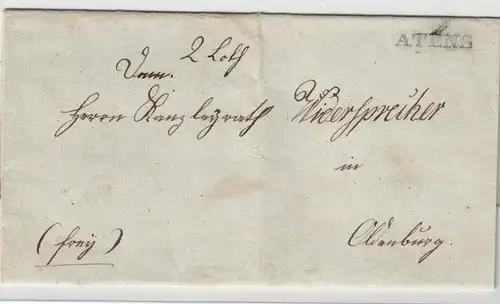 ATENS
2 Loth
Dem.
Herrn Kanzleyrath Widersprecher
in
Oldenburg.
(frey)